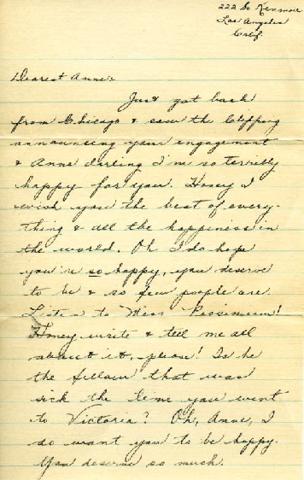 222 So Kenmore
Los Angeles
Calif.
Dearest Anne
Just got back
from Chicago & saw the Clipping
announcing your engagement
& Anne darling I'm so terribly
happy for you. Honey I
wish you the best of every-
thing & all the happiness in
the world. Oh I do hope
you're so happy, you deserve
to be & so few people are.
Listen to Miss Pessimism!
Honey, write & tell me all
about it, please! Is he
the fellow that was
sick the time you went
to Victoria? Oh, Anne, I
do want you to be happy.
You deserve so much.